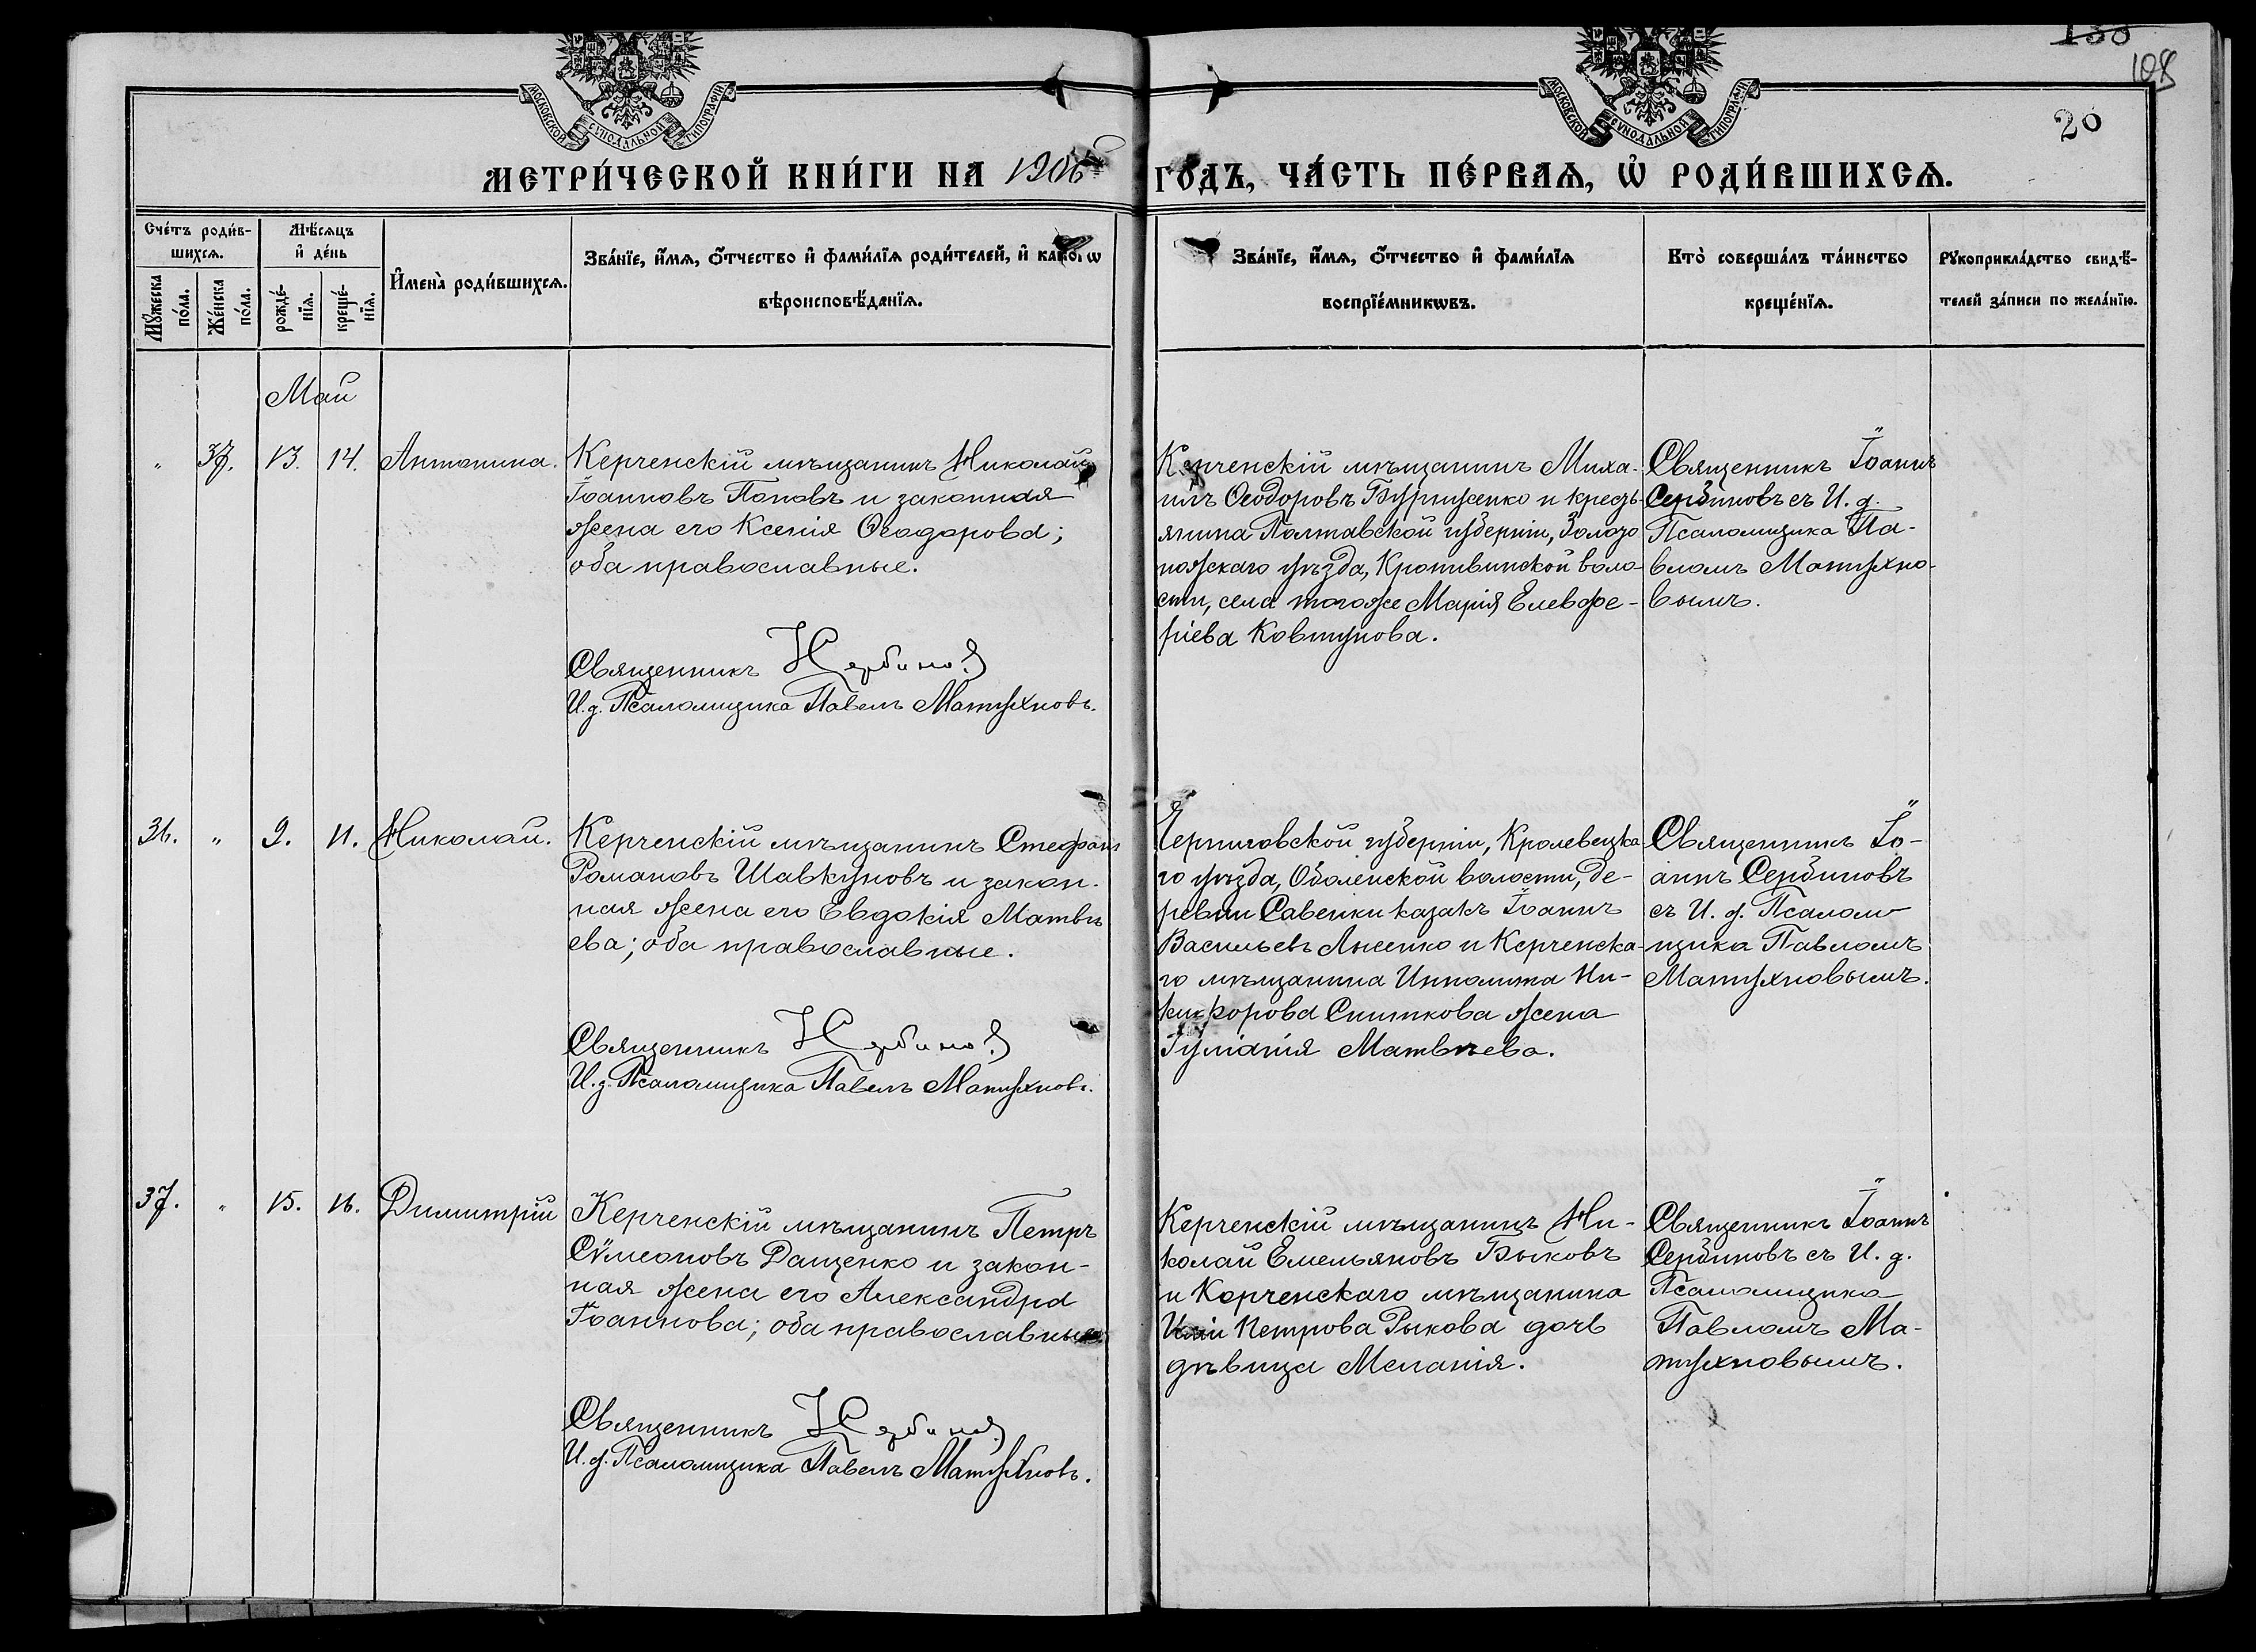 138
108
20
МОСКОВСКОЙ СУНОДАЛЬНОЙ ТИПОГРАФІИ
МОСКОВСКОЙ СУНОДАЛЬНОЙ ТИПОГРАФІИ
МЕТРИ́ЧЕСКОЙ КНИ́ГИ НА 1906
ГО́ДЪ, ЧА́СТЬ ПЕ́РВАѦ, Ѽ РОДИ́ВШИХСѦ.
Сче́тъ роди́в-
шихсѧ.
Мꙋ́жеска по́ла.
Же́нска по́ла.
Мѣ́сѧцъ
и҆ де́нь
рожде́-
нїѧ.
креще́-
нїѧ.
И҆мена̀ роди́вшихсѧ.
Зва́нїе, и҆́мѧ, ѻ҆́тчество и҆ фами́лїѧ роди́телей, и҆ како́гѡ
вѣроисповѣ́данїѧ.
Зва́нїе, и҆́мѧ, ѻ҆́тчество и҆ фами́лїѧ
воспрїе́мникѡвъ.
Кто̀ соверша́лъ та́инство
креще́нїѧ.
Рꙋкоприкла́дство свидѣ́-
телей за́писи по жела́нїю.
Май
„ 37. 13. 14. Антонина.
Керченскій мѣщанинъ Николай
Іоанновъ Поповъ и законная
жена его Ксенія Ѳеодорова;
оба православные.
Священникъ Сербинов
И.д. Псаломщика Павелъ Матухновъ.
Керченскій мѣщанинъ Миха-
илъ Ѳеодоровъ Бурнусенко и кресть-
янина Полтавской губерніи, Золото-
ножскаго уѣзда, Кропивинской воло-
сти, села тогоже Марія Елевѳе-
ріева Ковтунова.
Священникъ Іоаннъ
Сербиновъ съ И. д.
Псаломщика Па-
вломъ Матухно-
вымъ.
36. „ 9. 11. Николай.
Керченскій мѣщанинъ Стефанъ
Романовъ Шавкуновъ и закон-
ная жена его Евдокія Матвѣ
ева; оба православные.
Священникъ Сербинов
И.д. Псаломщика Павелъ Матухновъ.
Черниговской губерніи, Кролевецка-
го уѣзда, Оболенской волости, де-
ревни Савенки казакъ Іоаннъ
Васильевъ Лысенко и Керченска-
го мѣщанина Ипполита Ни-
кифорова Снимкова жена
Іуліанія Матвѣева.
Священникъ Іо-
аннъ Сербиновъ
съ И. д. Псалом-
щика Павломъ
Матухновымъ.
37. „ 15. 16. Димитрій
Керченскій мѣщанинъ Петръ
Сѵмеоновъ Дащенко и закон-
ная жена его Александра
Іоаннова; оба православные.
Священникъ Сербинов
И.д. Псаломщика Павелъ Матухновъ.
Керченскій мѣщанинъ Ни-
колай Емельяновъ Быковъ
и Керченскаго мѣщанина
Иліи Петрова Рыкова дочь
дѣвица Меланія.
Священникъ Іоаннъ
Сербиновъ съ И. д.
Псаломщика
Павломъ Ма-
тухновымъ.